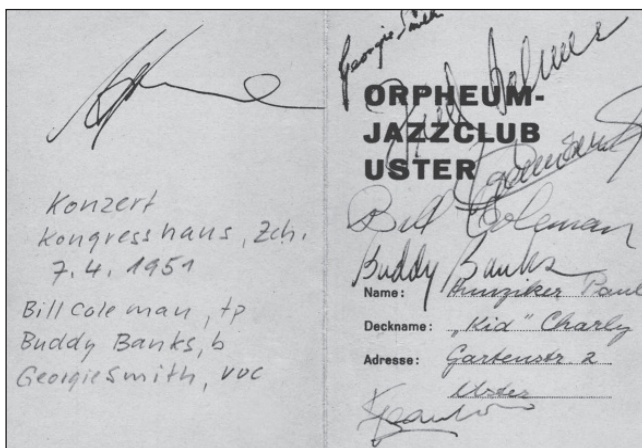 Konzert
Kongresshaus, Zch.
7.4.1951
Bill Coleman, tp
Buddy Banks, b
Georgie Smith, voc
Georgie Smith
ORPHEUM-
JAZZCLUB
USTER
Bill Coleman
Buddy Banks
Name: Hunziker Paul
Deckname: „Kid" Charly
Adresse: Gartenstr. 2
Uster